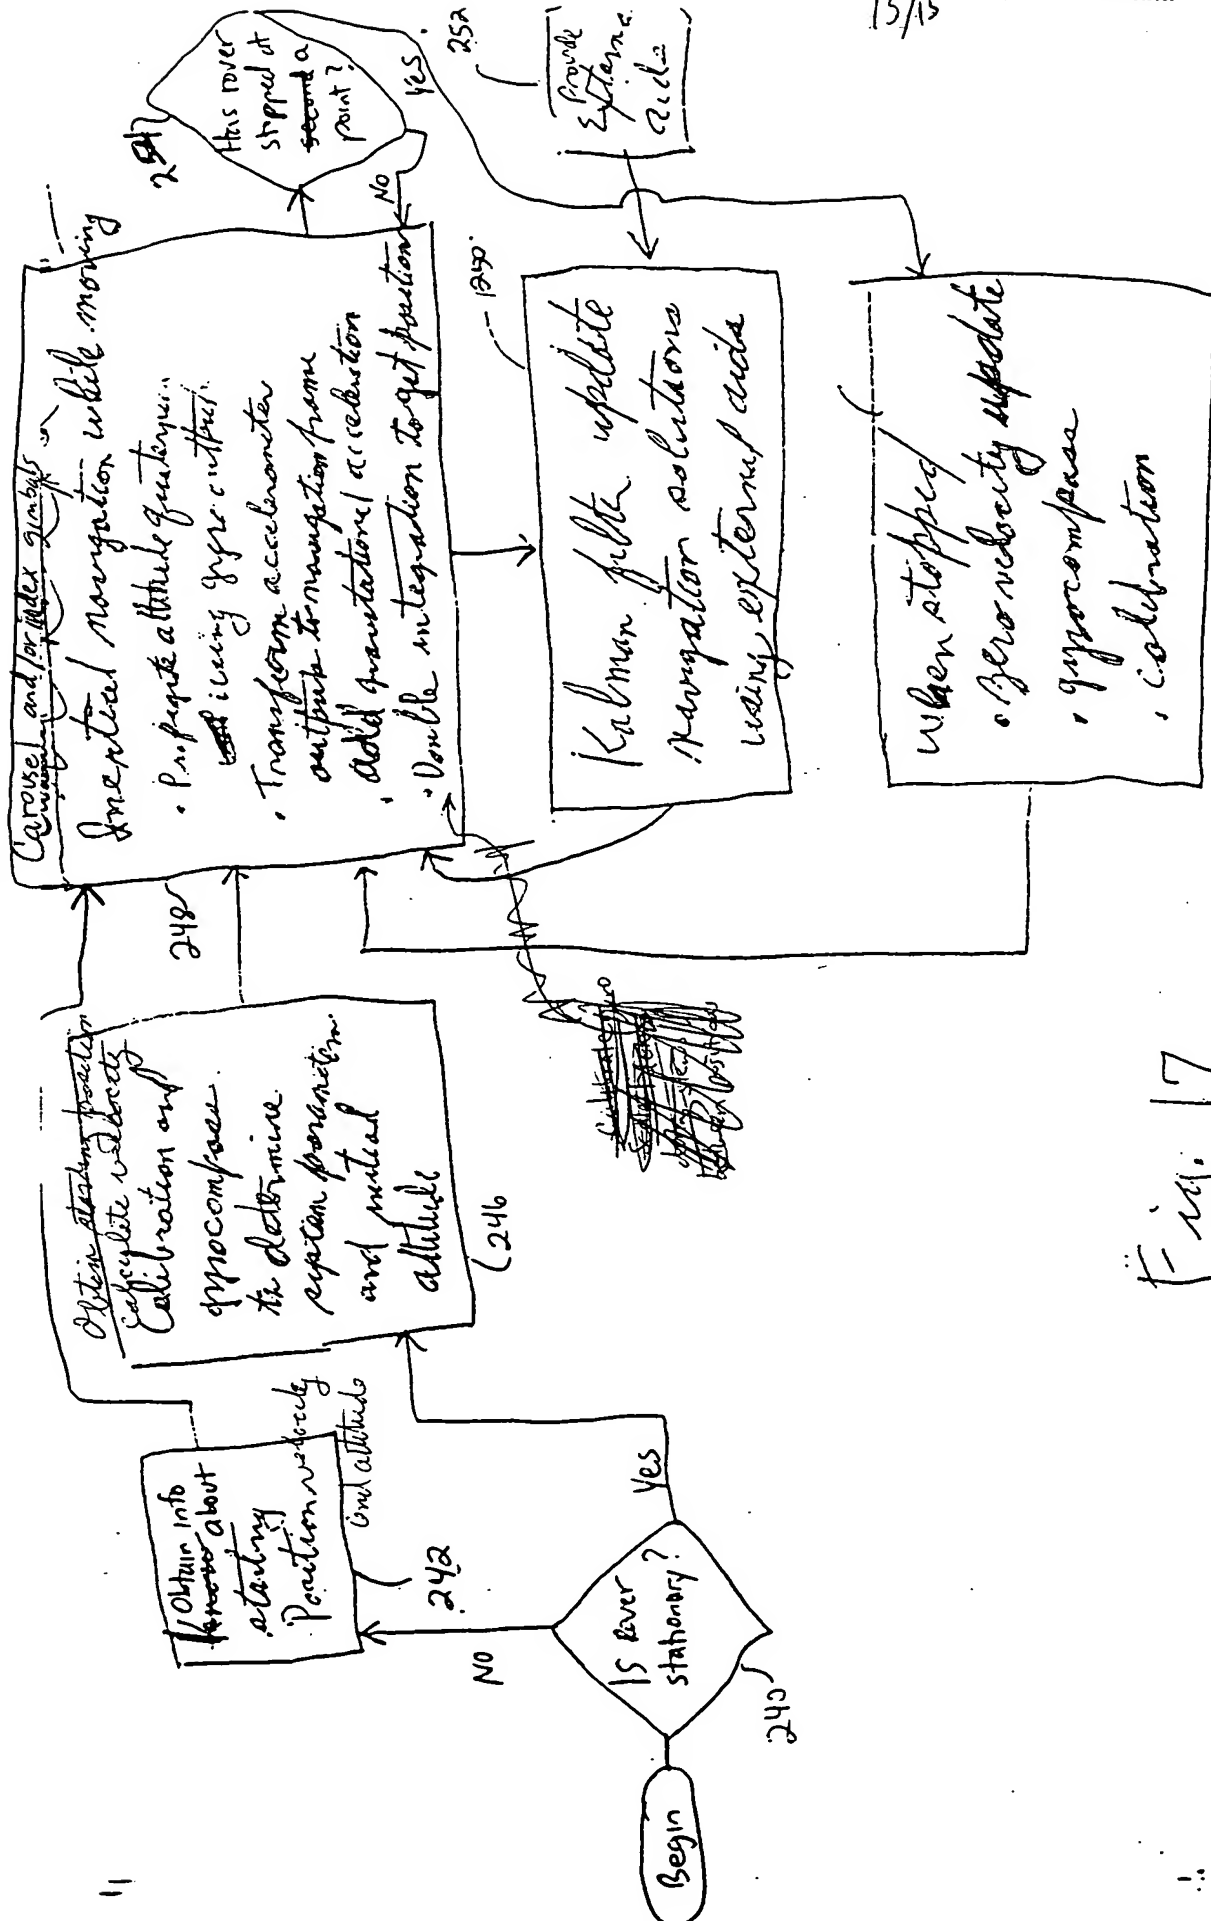 15/15
Begin
Is Rover
stationary?
240
NO
Yes
Obtain info
about
starting
Position velocity
and attitude
242
Obtain starting position
calculate velocity
Calibration and
gyrocompass
to determine
system parameters
and initial
attitude
246
Carousel and/or index gimbals
Inertial navigation while moving
• Propagate attitude
using gyro outputs
• Transform accelerometer
outputs to navigation frame
• add gravitational acceleration
• Double integration to get position
248
Has rover
stopped at
second a
point?
NO
Yes
Provide
External
aids
252
Kalman filter update
navigation solutions
using external aids
When stopped
• Zero velocity update
• gyrocompass
• calibration
Fig. 17